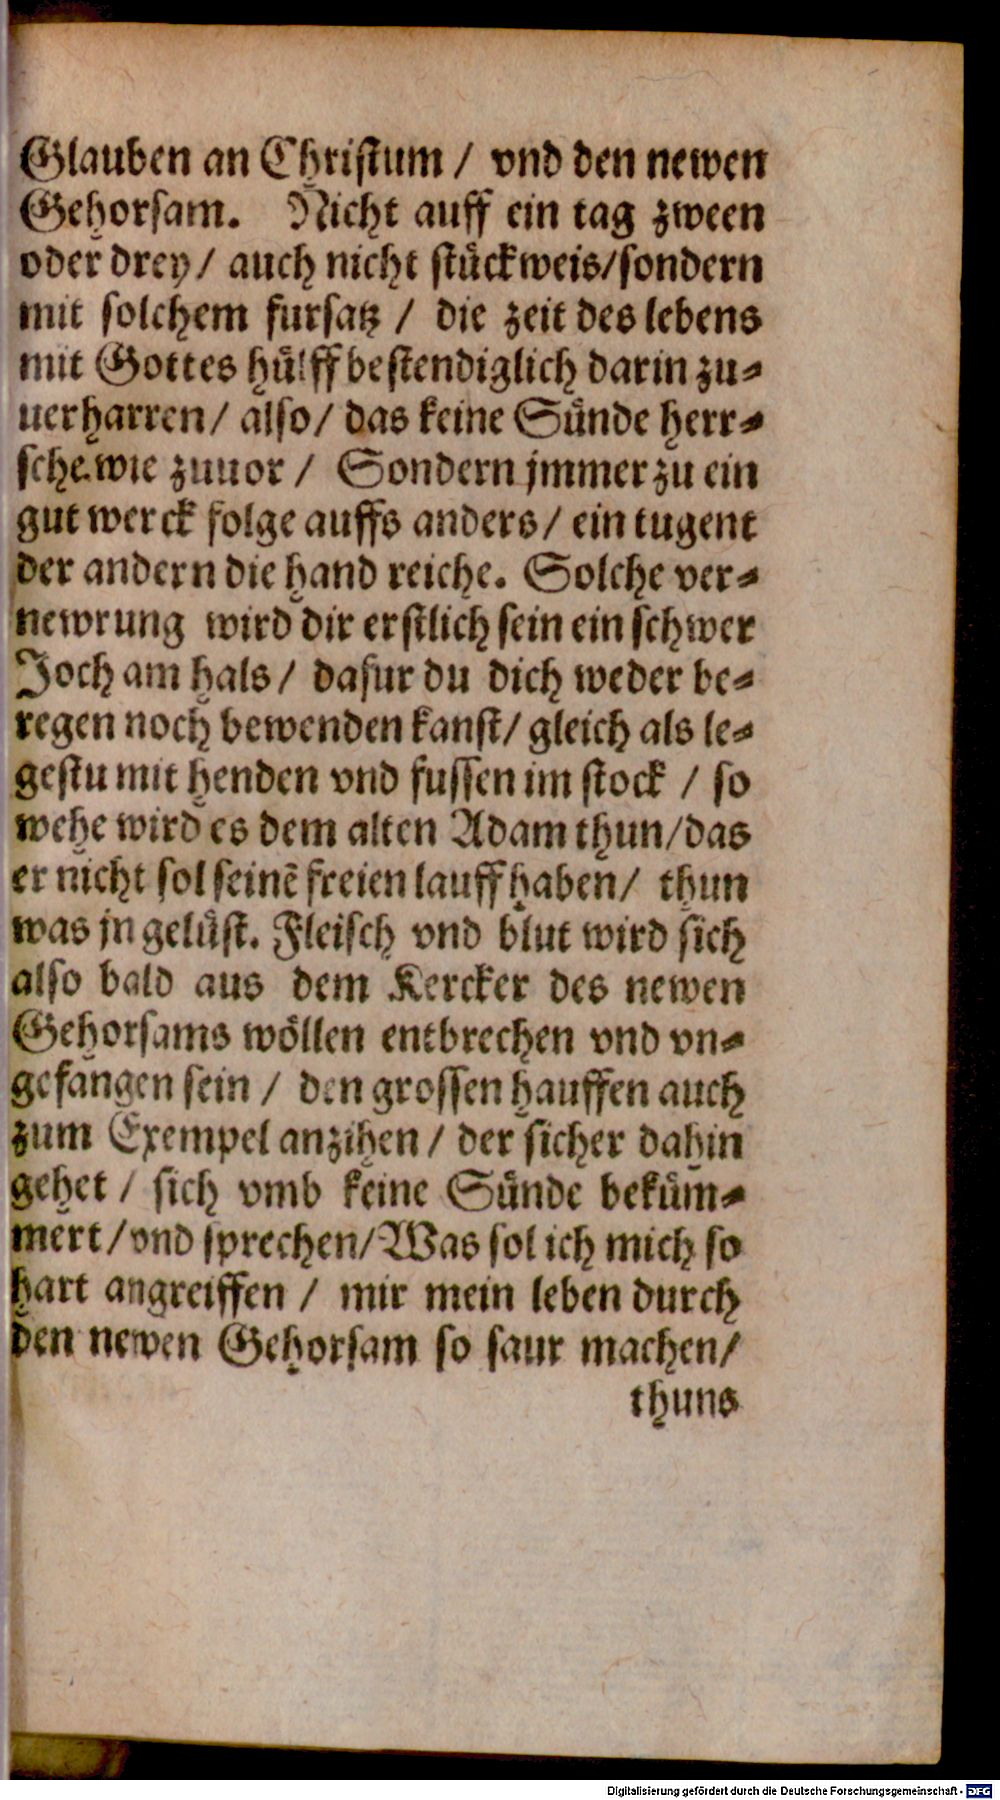 Glauben an Christum / vnd den newen
Gehorsam. Nicht auff ein tag zween
oder drey / auch nicht stückweis/sondern
mit solchem fursatz / die zeit des lebens
mit Gottes hülff bestendiglich darin zu-
uerharren / also / das keine Sünde herr-
sche wie zuuor / Sondern jmmer zu ein
gut werck folge auffs anders / ein tugent
der andern die hand reiche. Solche ver-
newrung wird dir erstlich sein ein schwer
Joch am hals / dafur du dich weder be-
regen noch bewenden kanst / gleich als le-
gestu mit henden vnd fussen im stock / so
wehe wird es dem alten Adam thun/das
er nicht sol seinē freien lauff haben / thun
was jn gelüst. Fleisch vnd blut wird sich
also bald aus dem Kercker des newen
Gehorsams wöllen entbrechen vnd vn-
gefangen sein / den grossen hauffen auch
zum Exempel anzihen / der sicher dahin
gehet / sich vmb keine Sünde beküm-
mert / vnd sprechen/Was sol ich mich so
hart angreiffen / mir mein leben durch
den newen Gehorsam so saur machen/
thuns
Digitalisierung gefördert durch die Deutsche Forschungsgemeinschaft - DFG